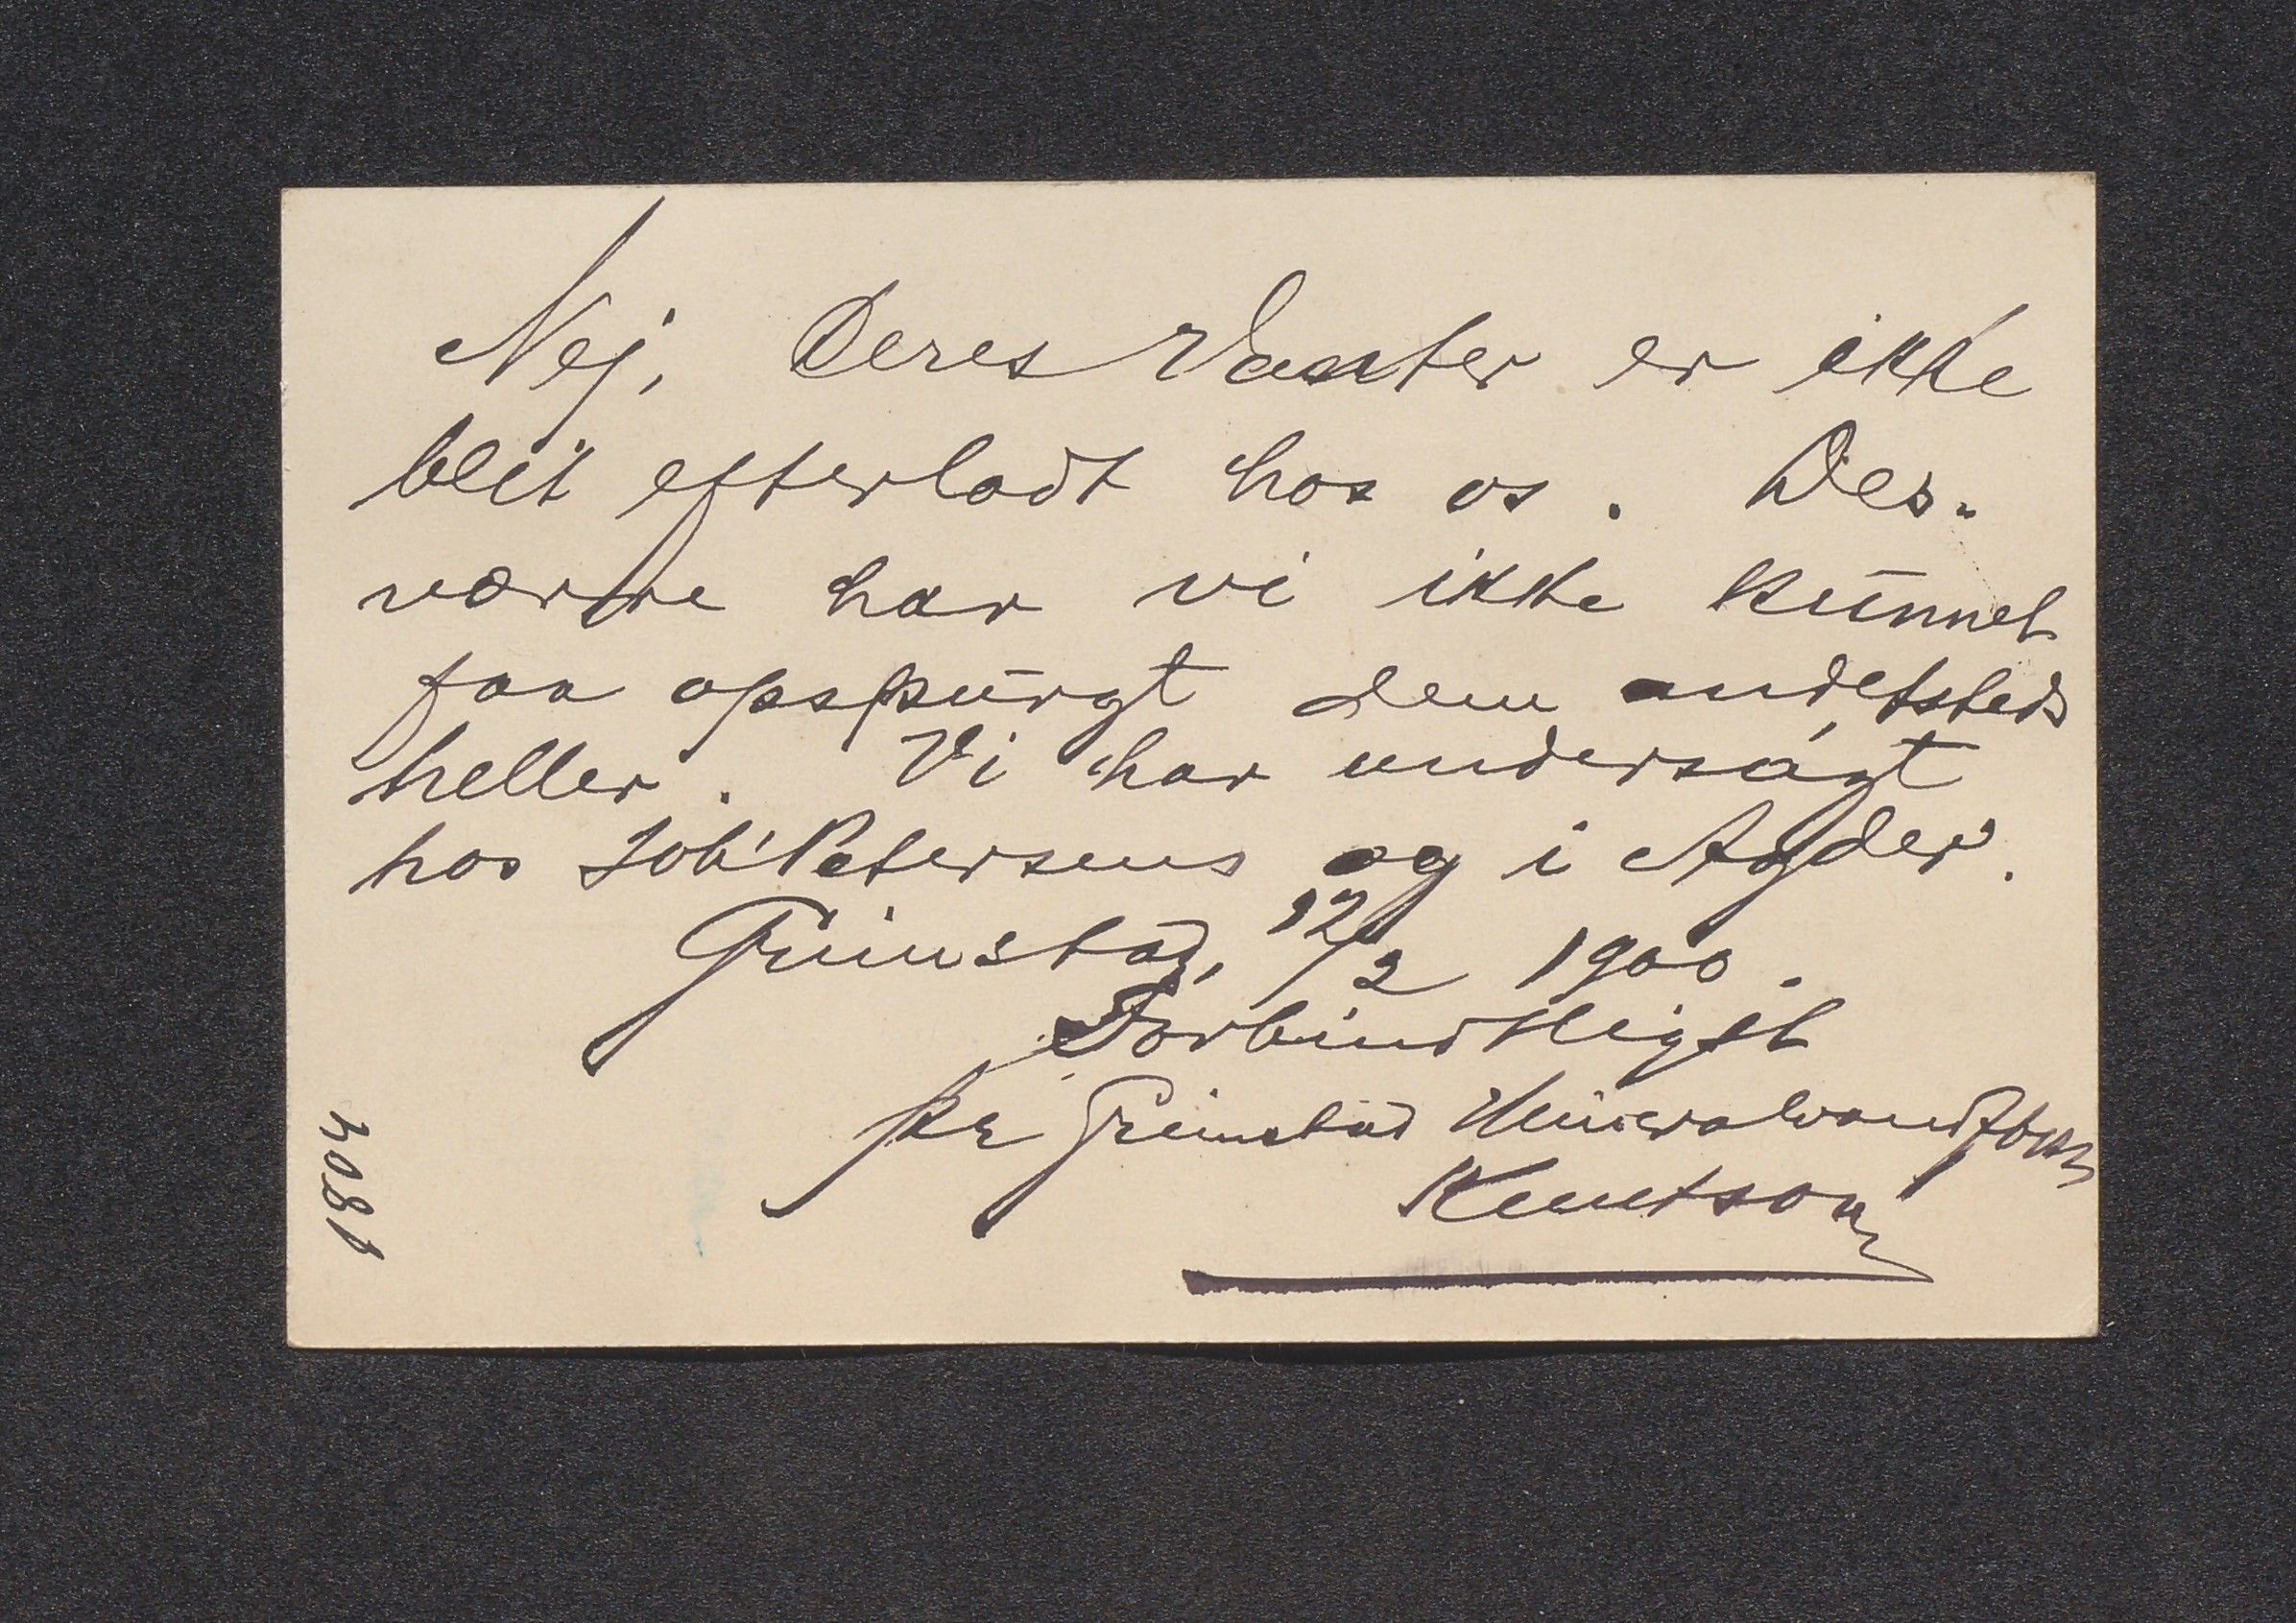 Nej, Deres Vanter er ikke
blit efterladt hos os. Des-
værre har vi ikke kunnet
faa opspurgt dem andetsteds
heller. Vi har undersøgt
hos Joh' Petersens og i Agder.
Grimstad, 12/2 1900.
Forbindtligst
pr Grimstad Mineralvandfbrk
Knutson
1804